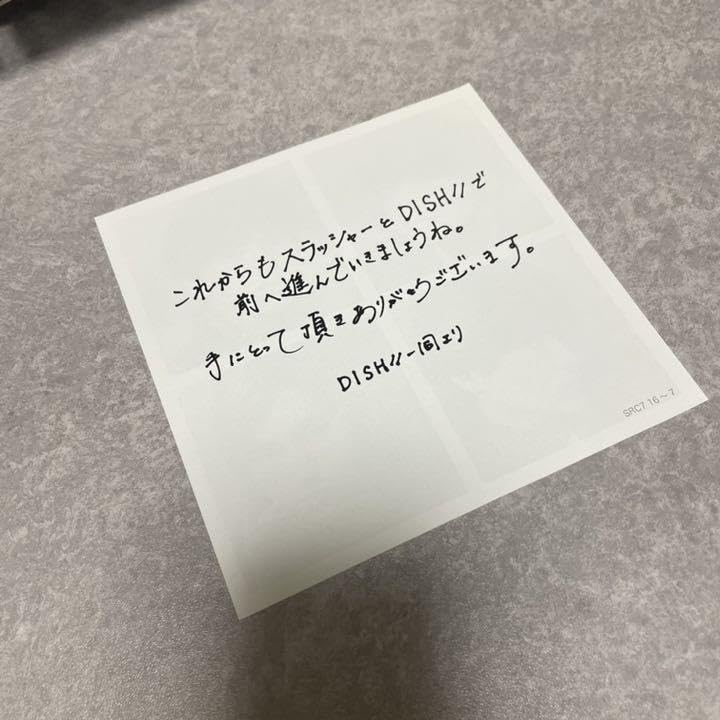 これからもスラッシャーとDISH//で
前へ進んでいきましょうね。
手にとって頂きありがとうございます。
DISH//一同より
SRC7 16～7